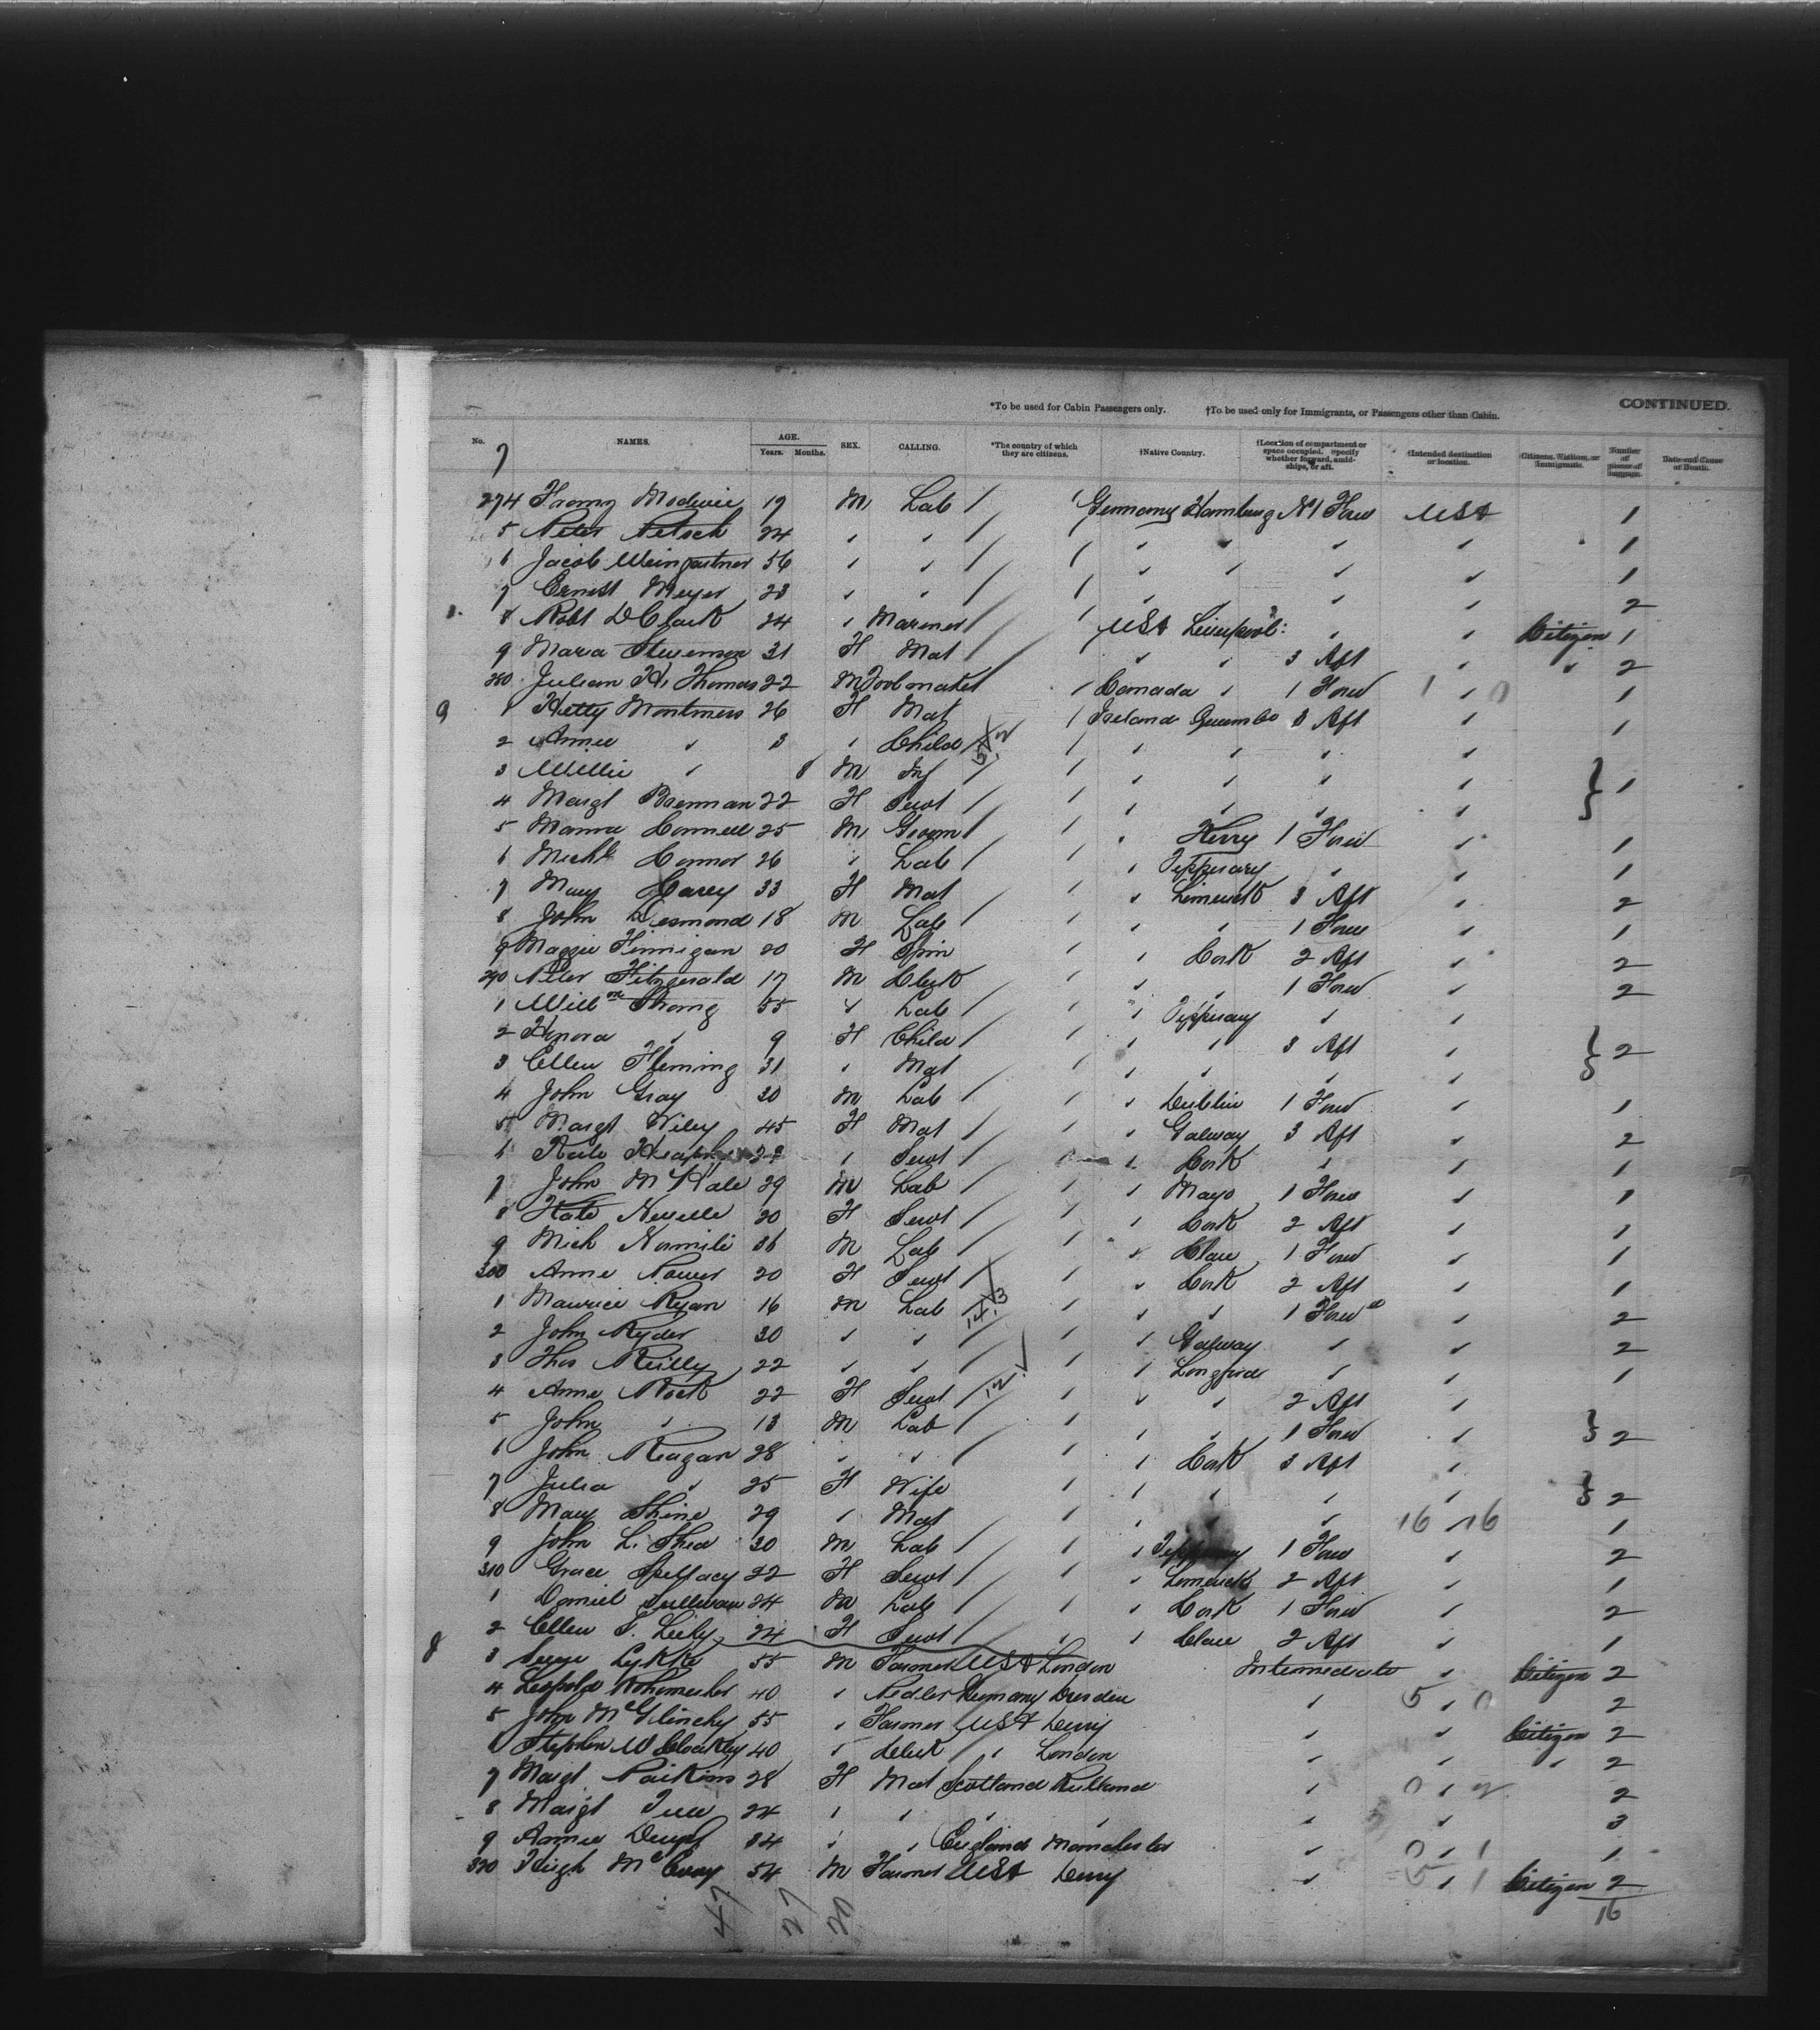 *To be used for Cabin Passengers only. †To be used only for Immigrants, or Passengers other than Cabin. CONTINUED.
No. NAMES. AGE. Years. Months. SEX. CALLING. *The country of which they are citizens. †Native Country. †Location of compartment or space occupied. Specify whether forward, amidships, or aft. †Intended destination or location. Citizens, Visitors, or Immigrants. Number of pieces of baggage. Date and Cause of Death.
7
274 19 M Lab Germany Hamburg No 1 Forw USA 1
5 Peter 24 1
6 Jacob Weingartner 56 1
7 Ernest Meyer 28 2
8 Robt D Clark 24 Mariner USA Liverpool Citizen 1
9 Maria Stevenson 31 F Mat 3 Aft 2
280 Julian H. Thomas 22 M Toolmaker Canada 1 Forw 1 0 1
9 1 Hetty 26 F Mat Ireland 3 Aft 1
2 Annie 3 Child
3 Willie 8 M Inf 1
4 Margt Brennan 22 F Servt
5 Connell 25 M Groom Kerry 1 Forw 1
6 Michl Connor 26 Lab Tipperary 1
7 Mary Carey 33 F Mat Limerick 3 Aft 2
8 John Desmond 18 M Lab 1 Forw 1
9 Maggie Finnigan 20 F Spin Cork 2 Aft 2
290 Peter Fitzgerald 17 M Clerk 1 Forw 2
1 Willm Strong 55 Lab Tipperary
2 Honora 9 F Child 3 Aft 2
3 Ellen Fleming 31 Mat
4 John Gray 20 M Lab Dublin 1 Forw 1
5 Margt 45 F Mat Galway 3 Aft 2
6 Kate Servt Cork 1
7 John McHale 29 M Lab Mayo 1 Forw 1
8 Kate Neville 20 F Servt Cork 2 Aft 1
9 Mich 36 M Lab Clare 1 Forw 1
300 Anne Power 20 F Servt Cork 2 Aft 1
1 Maurice Ryan 16 M Lab 1 Forw 2
2 John Ryder 30 Galway 2
3 Thos Reilly 22 Longford 1
4 Anne Rock 22 F Servt 2 Aft
5 John 13 M Lab 1 Forw 2
6 John Reagan 28 Cork 3 Aft
7 Julia 25 F Wife 2
8 Mary Shine 29 Mat 16 16 1
9 John L. Shea 30 M Lab Tipperary 1 Forw 2
310 Grace Spellacy 22 F Servt Limerick 2 Aft 1
1 Daniel Sullivan 24 M Lab Cork 1 Forw 2
2 Ellen S. 24 F Servt Clare 2 Aft 1
8 3 Lykke 55 M Farmer USA London Intermediate Citizen 2
4 Leopold 40 Pedler Germany Dresden 5 0 2
5 John McGlinchy 55 Farmer USA Derry Citizen 2
6 Stephen W 40 Clerk London 2
7 Margt 28 F Mat Scotland 0 2 2
8 Margt 24 3
9 Annie 34 England Manchester 0 1 1
320 Hugh McEvoy 54 M Farmer USA Derry 5 1 Citizen 2
47 27 20 16